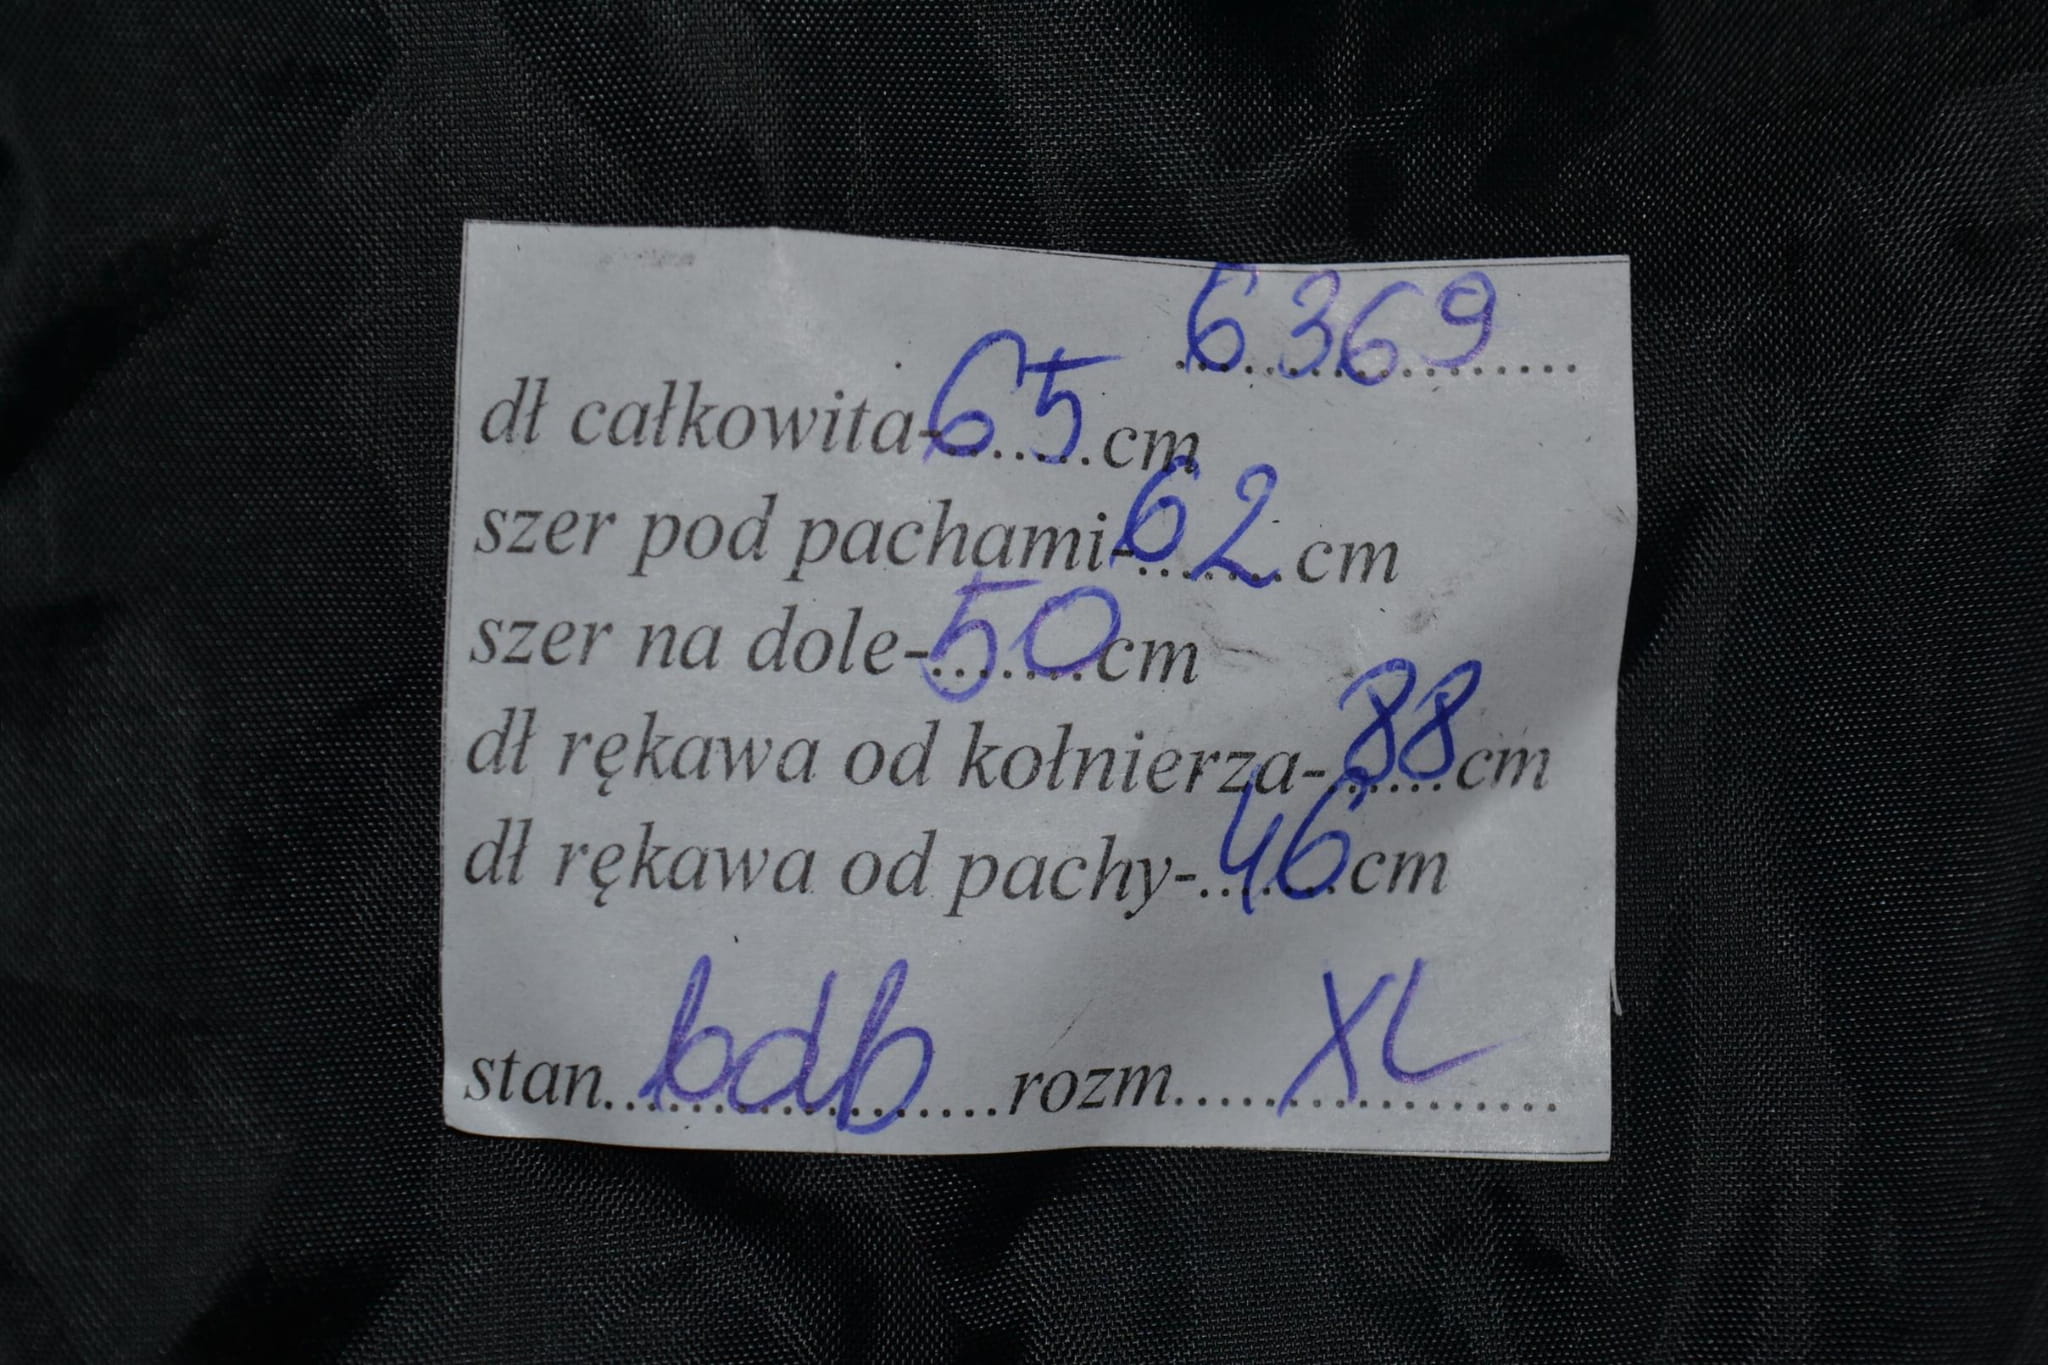 6369
dł całkowita-65cm
szer pod pachami-62cm
szer na dole-50cm
dł rękawa od kołnierza-88cm
dł rękawa od pachy-46cm
stan..bdb...rozm....XL...